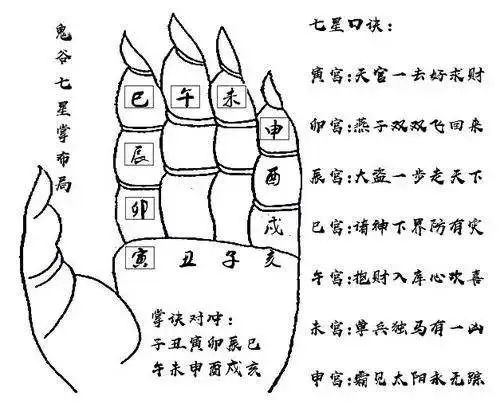 鬼谷七星掌布局
巳 午 未
申
辰
酉
卯
戌
寅 丑 子 亥
掌诀对冲：
子丑寅卯辰巳
午未申酉戌亥
七星口诀：
寅宫：天官一去好求财
卯宫：燕子双双飞回来
辰宫：大盗一步走天下
巳宫：诸神下界防有灾
午宫：抱财入库心欢喜
未宫：单兵独马有一凶
申宫：霜见太阳永无踪